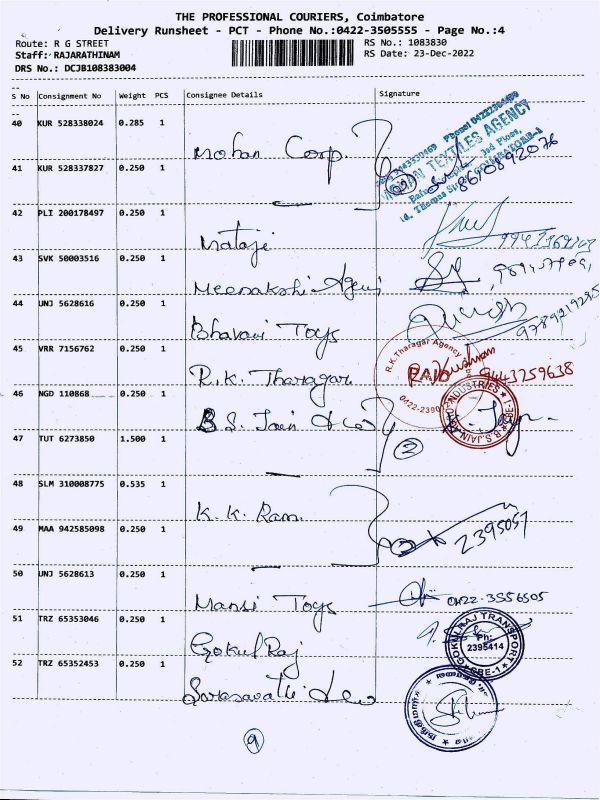 THE PROFESSIONAL COURIERS, Coimbatore
Delivery Runsheet - PCT - Phone No.:0422-3505555 - Page No.:4
Route: R G STREET
RS No.: 1083830
Staff: RAJARATHINAM
RS Date: 23-Dec-2022
DRS No.: DCJB108383004
S No Consignment No Weight PCS Consignee Details Signature
40 KUR 528338024 0.285 1
Mohan Corp.
41 KUR 528337827 0.250 1
VARDHMAN TEXTILES AGENCY
3rd Floor,
8610892076
42 PLI 200178497 0.250 1
Mataji
43 SVK 50003516 0.250 1
Meenakshi
44 UNJ 5628616 0.250 1
Bhavani Toys
9789219285
45 VRR 7156762 0.250 1
R.K. Tharagar
R.K.Tharagar Agency
PAID
9443259638
46 NGD 110868 0.250 1
B.S. Jain
INDUSTRIES
B.S.JAIN
47 TUT 6273850 1.500 1
2
48 SLM 310008775 0.535 1
K.K. Ram
2395057
49 MAA 942585098 0.250 1
50 UNJ 5628613 0.250 1
Mansi Toys
0422-3556505
51 TRZ 65353046 0.250 1
Gokul Raj
GOKULRAJ TRANSPORT
Ph:
2395414
CBE-1
52 TRZ 65352453 0.250 1
9